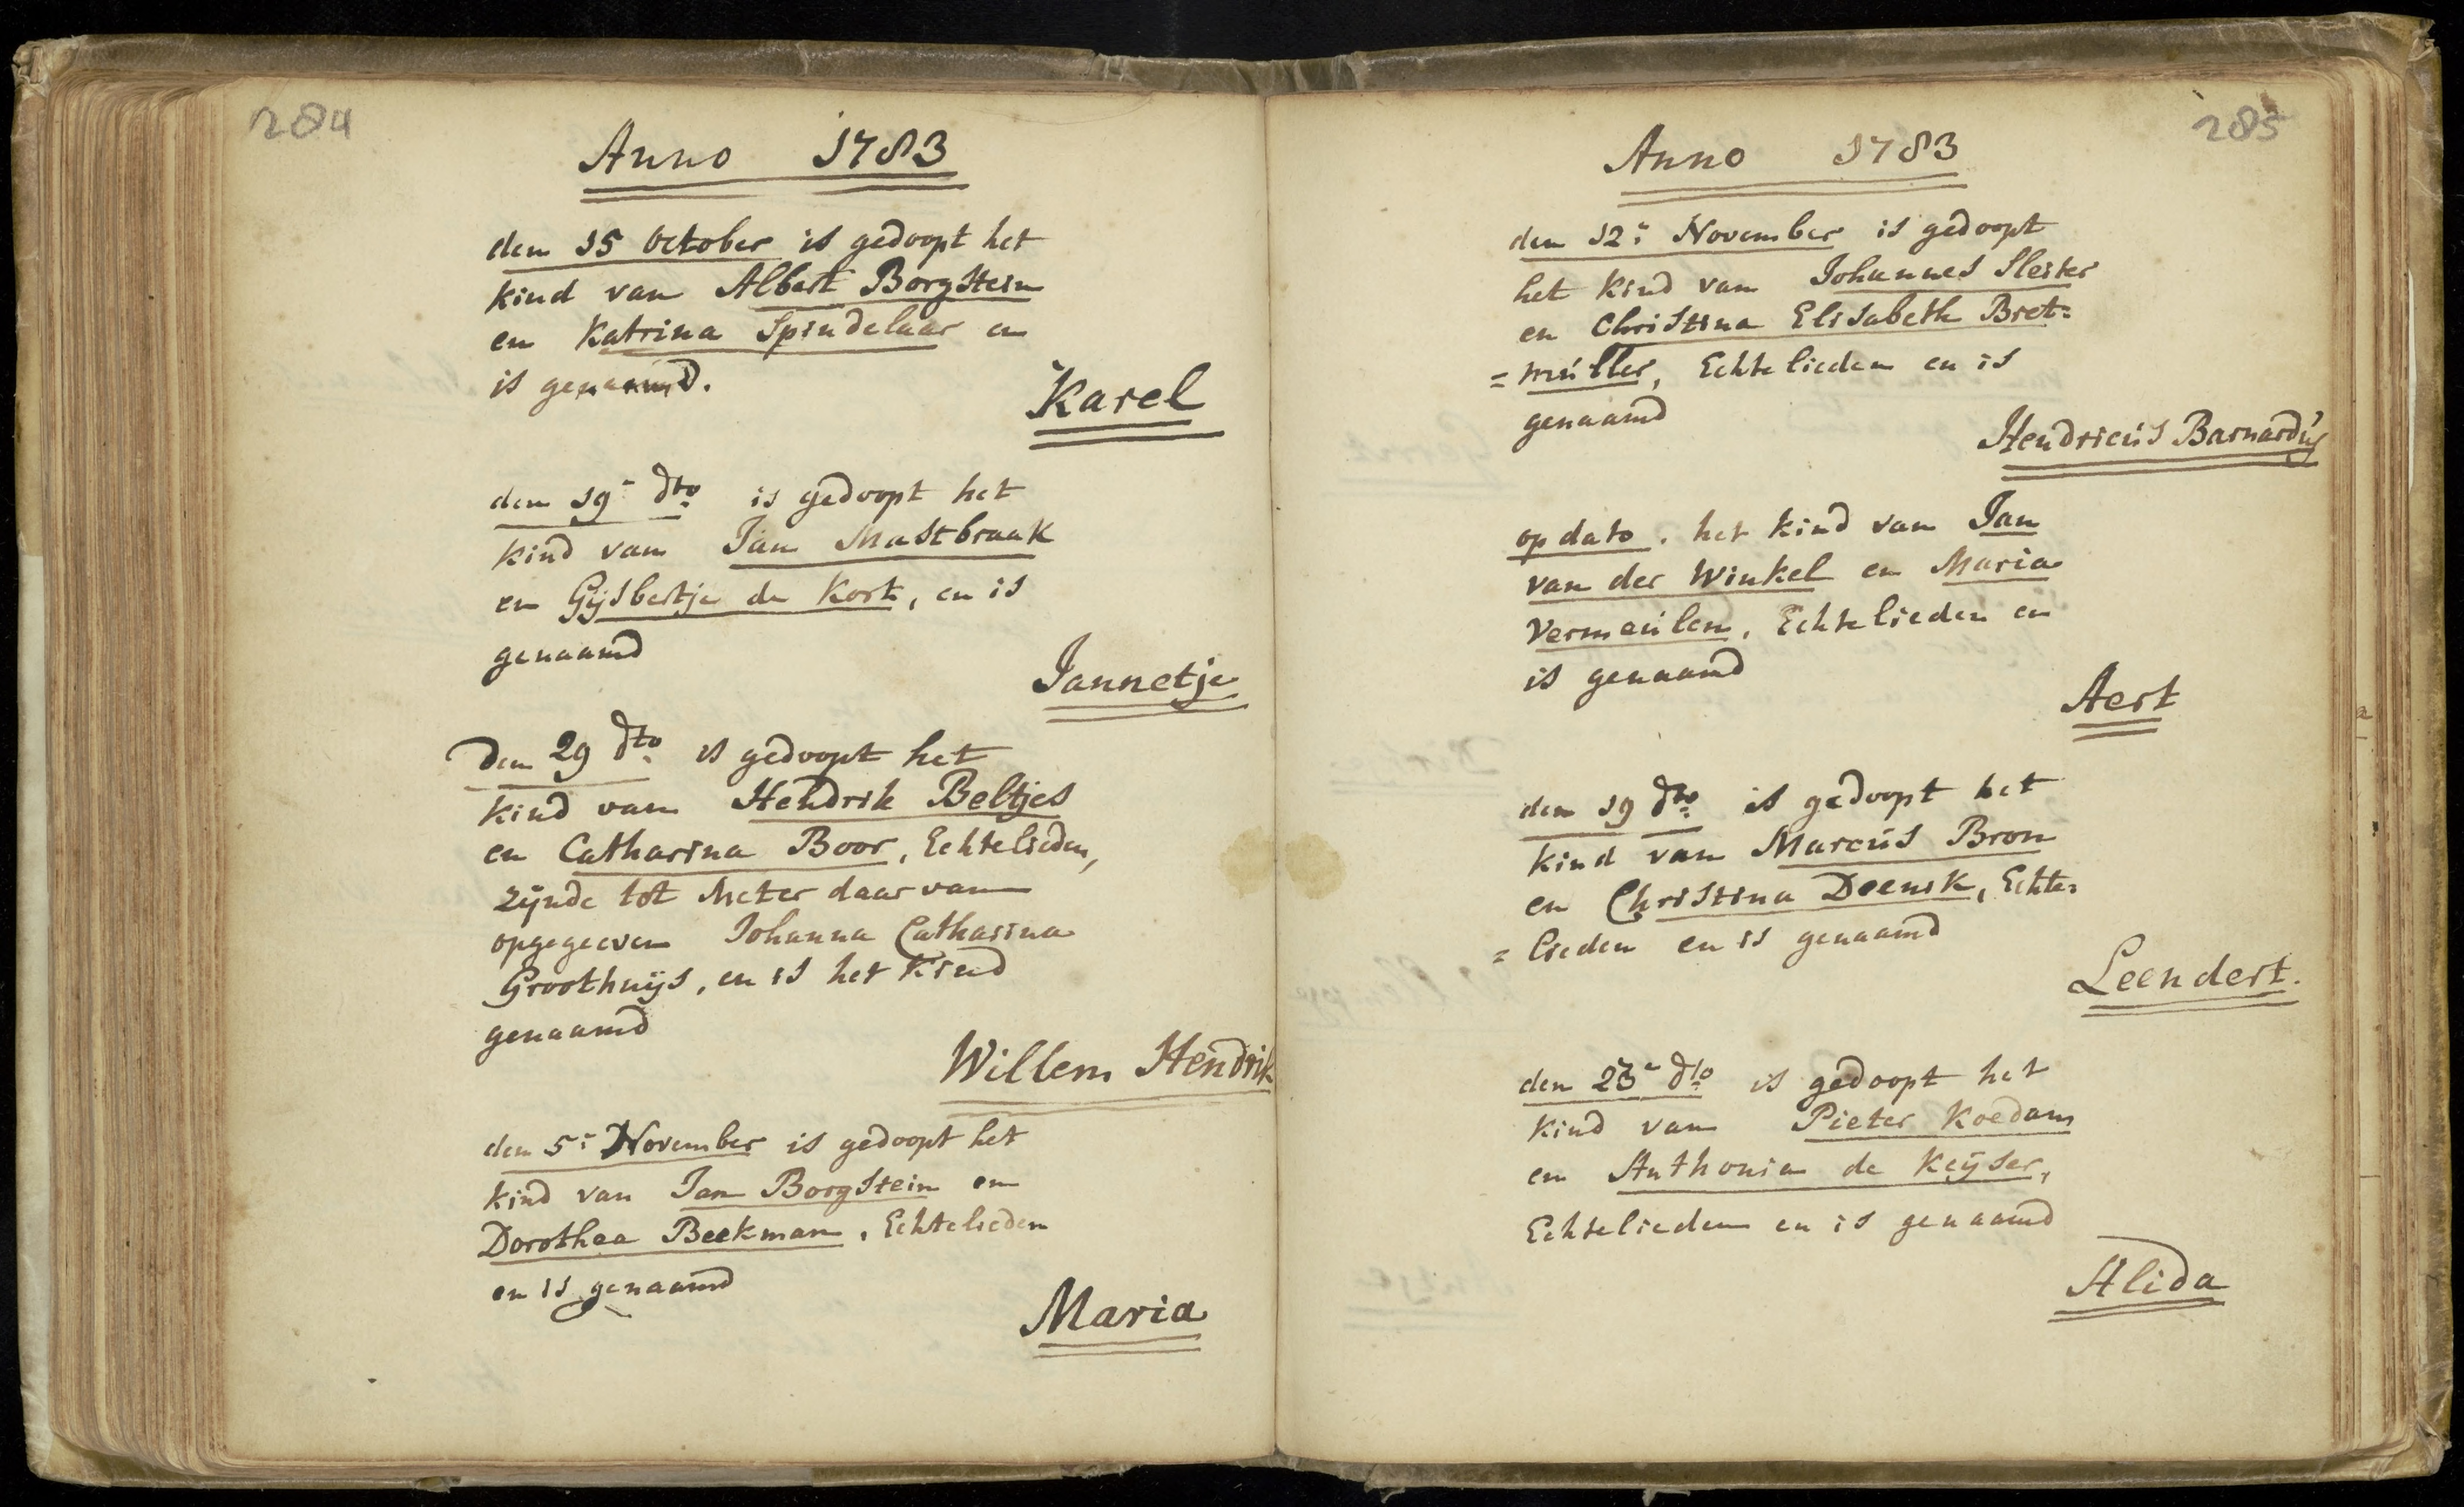 284
Anno 1783
den 15 October is gedoopt het
kind van Albert Borgstein
en Katrina Spindelaar en
is genaamd.
Karel
den 19 dto is gedoopt het
kind van Jan Mastbraak
en Gijsbertje de Kort, en is
genaamd
Jannetje
den 29 dto is gedoopt het
kind van Hendrik Beltjes
en Catharina Boor, Echtelieden,
zijnde tot Meter daar van
opgegeeven Johanna Catharina
Groothuijs, en is het kind
genaamd
Willem Hendrik
den 5: November is gedoopt het
kind van Jan Borgstein en
Dorothea Beekman, Echtelieden
en is genaamd
Maria
285
Anno 1783
den 12: November is gedoopt
het kind van Johannes Slester
en Christina Elisabeth Bret=
=müller, Echtelieden en is
genaamd
Hendricus Barnardus
op dato. het kind van Jan
van der Winkel en Maria
Vermeulen, Echtelieden en
is genaamd
Aert
den 19 dto is gedoopt het
kind van Marcus Bron
en Christina Deenik, Echte=
=lieden en is genaamd
Leendert.
den 23 dto is gedoopt het
kind van Pieter Koedam
en Anthonia de Keijser,
Echtelieden en is genaamd
Alida